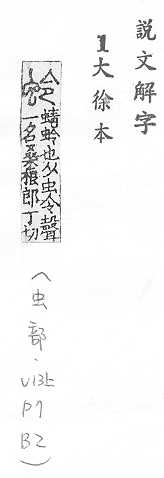 説文解字
1大徐本
蛉
蜻蛉也从虫令聲
一名桑根郎丁切
(虫部·V13上
P7
B2)